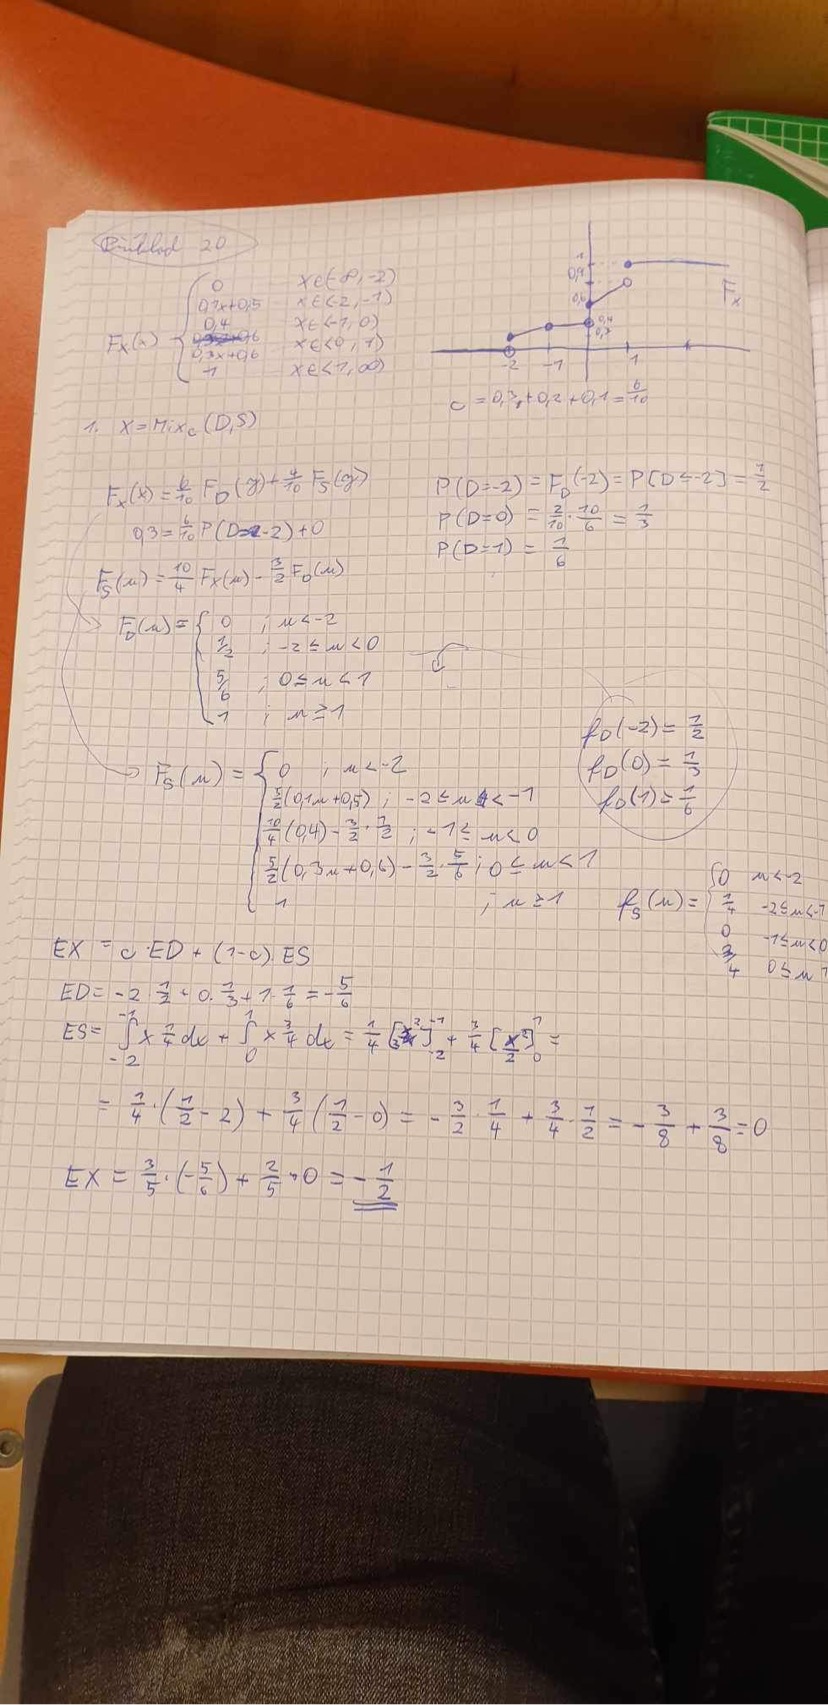 Příklad 20
F_X(x) { 0 x∈(-∞,-2)
0,1x+0,5 x∈<-2,-1)
0,4 x∈<-1,0)
0,3x+0,6 x∈<0,1)
1 x∈<1,∞)
1
0,9
0,6
0,4
0,3
-2 -1 1
F_X
c = 0,3+0,2+0,1 = 6/10
1. X = Mix_c(D,S)
F_X(x) = 6/10 F_D(y) + 4/10 F_S(y)
0,3 = 6/10 P(D=-2) + 0
F_S(u) = 10/4 F_X(u) - 3/2 F_D(u)
P(D=-2) = F_D(-2) = P[D≤-2] = 1/2
P(D=0) = 2/10 · 10/6 = 1/3
P(D=1) = 1/6
F_D(u) = { 0 ; u<-2
1/2 ; -2≤u<0
5/6 ; 0≤u<1
1 ; u≥1
f_D(-2) = 1/2
f_D(0) = 1/3
f_D(1) = 1/6
F_S(u) = { 0 ; u<-2
5/2(0,1u+0,5) ; -2≤u<-1
10/4(0,4) - 3/2 · 1/2 ; -1≤u<0
5/2(0,3u+0,6) - 3/2 · 5/6 ; 0≤u<1
1 ; u≥1
f_S(u) = { 0 u<-2
1/4 -2≤u<-1
0 -1≤u<0
3/4 0≤u 1
EX = c·ED + (1-c)·ES
ED = -2·1/2 + 0·1/3 + 1·1/6 = -5/6
ES = ∫_{-2}^{-1} x 1/4 dx + ∫_0^1 x 3/4 dx = 1/4 [x²/2]_{-2}^{-1} + 3/4 [x²/2]_0^1 =
= 1/4·(1/2 - 2) + 3/4(1/2 - 0) = -3/2·1/4 + 3/4·1/2 = -3/8 + 3/8 = 0
EX = 3/5·(-5/6) + 2/5·0 = -1/2